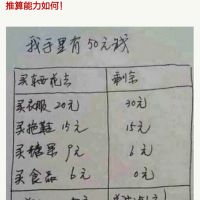 推算能力如何！
我手里有50元钱
买东西花去 剩余
买衣服 20元 30元
买拖鞋 15元 15元
买糖果 9元 6元
买食品 6元 0元